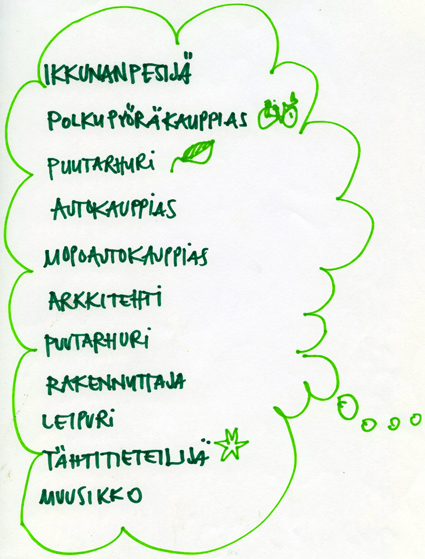 IKKUNANPESIJÄ
POLKUPYÖRÄKAUPPIAS
PUUTARHURI
AUTOKAUPPIAS
MOPOAUTOKAUPPIAS
ARKKITEHTI
PUUTARHURI
RAKENNUTTAJA
LEIPURI
TÄHTITIETEILIJÄ
MUUSIKKO